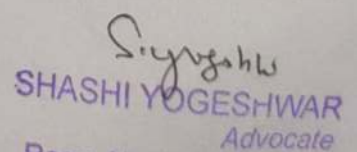 S.yogeshw
SHASHI YOGESHWAR
Advocate